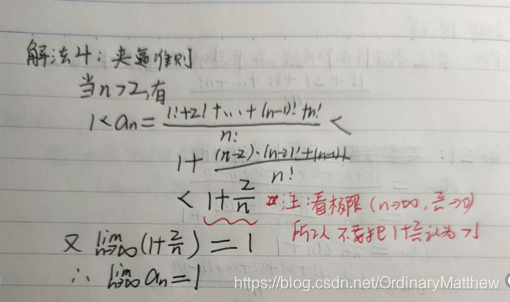 解法4：夹逼准则
当n>2,有
1<an=(1!+2!+…+(n-1)!+n!)/n! <
1+((n-2)·(n-2)!+(n-1)!)/n!
<1+2/n 注：看极限(n→∞, 2/n→0)
所以不要把1+2/n认为>1
又 lim n→∞ (1+2/n)=1
∴ lim n→∞ an=1
https://blog.csdn.net/OrdinaryMatthew